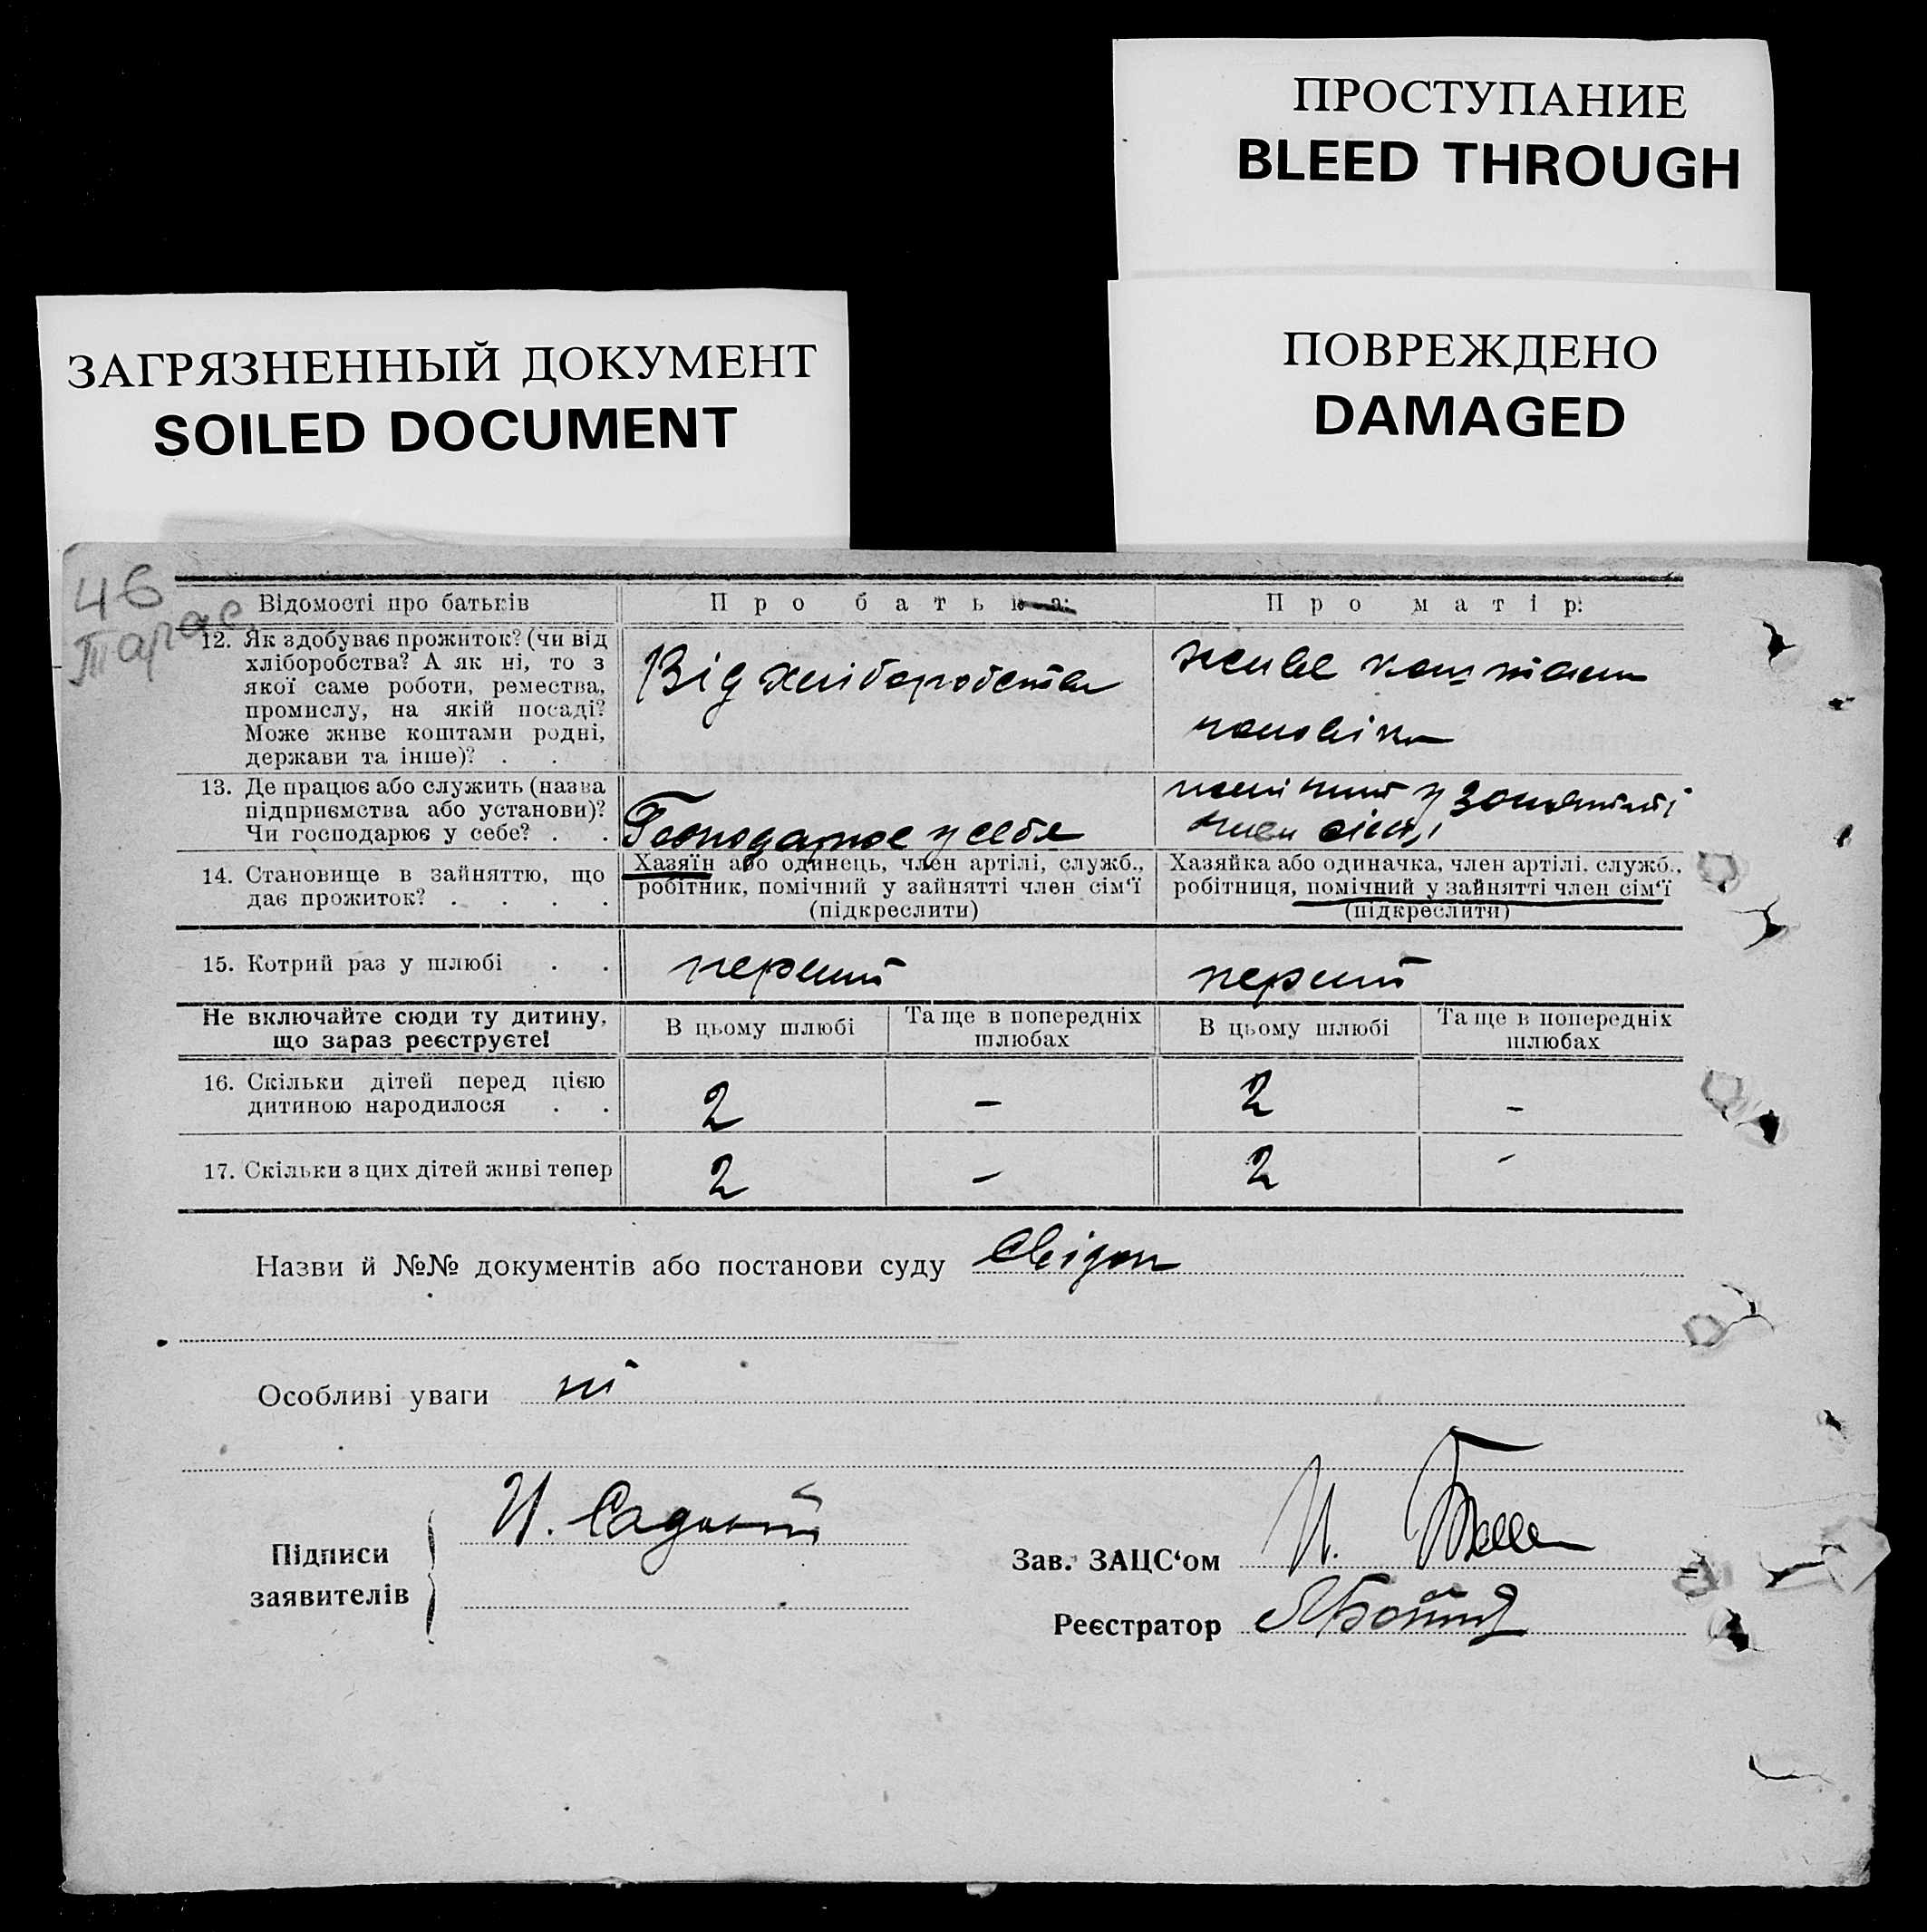 ПРОСТУПАНИЕ
BLEED THROUGH
ЗАГРЯЗНЕННЫЙ ДОКУМЕНТ
SOILED DOCUMENT
ПОВРЕЖДЕНО
DAMAGED
46
Тарас
Відомості про батьків
Про батька:
Про матір:
12. Як здобуває прожиток? (чи від
хліборобства? А як ні, то з
якої саме роботи, ремества,
промислу, на якій посаді?
Може живе коштами родні,
держави та інше)? . .
Від хліборобства
живе коштами
чоловіка
13. Де працює або служить (назва
підприємства або установи)?
Чи господарює у себе? . .
Господарює у себе
помічний у занятті
член сімї
14. Становище в зайняттю, що
дає прожиток? . . . .
Хазяїн або одинець, член артілі, служб.,
робітник, помічний у зайнятті член сім'ї
(підкреслити)
Хазяйка або одиначка, член артілі, служб.,
робітниця, помічний у зайнятті член сім'ї
(підкреслити)
15. Котрий раз у шлюбі . .
перший
перший
Не включайте сюди ту дитину,
що зараз реєструєте!
В цьому шлюбі
Та ще в попередніх
шлюбах
В цьому шлюбі
Та ще в попередніх
шлюбах
16. Скільки дітей перед цією
дитиною народилося . .
2 – 2 –
17. Скільки з цих дітей живі тепер
2 – 2 –
Назви й №№ документів або постанови суду
Особливі уваги ні
Підписи
заявителів
И. Садовий
Зав. ЗАЦС'ом И.
Реєстратор